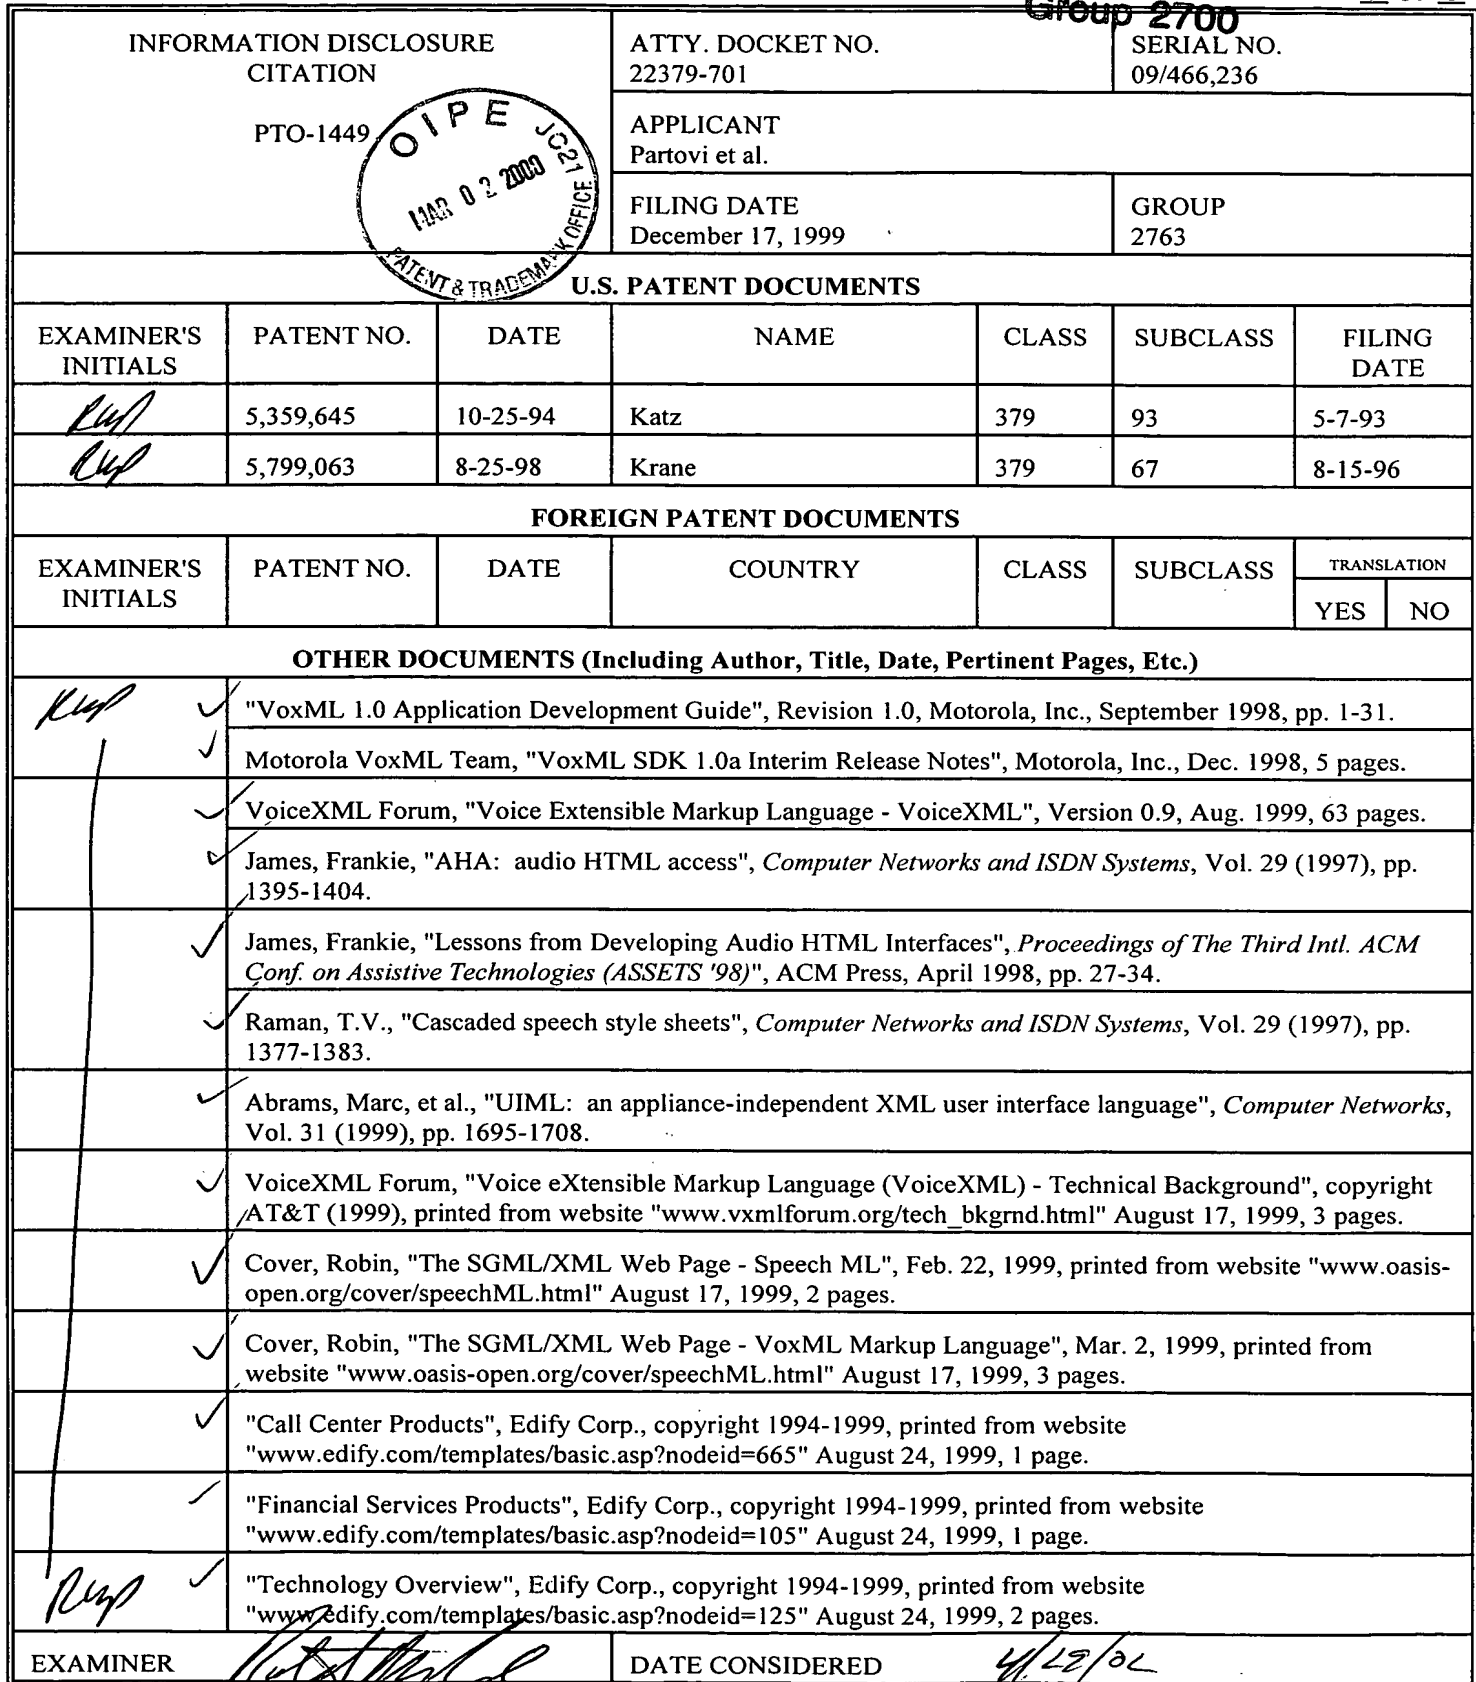 Group 2700
INFORMATION DISCLOSURE
CITATION
PTO-1449
OIPE JC21
MAR 02 2000
PATENT & TRADEMARK OFFICE
ATTY. DOCKET NO.
22379-701
SERIAL NO.
09/466,236
APPLICANT
Partovi et al.
FILING DATE
December 17, 1999
GROUP
2763
U.S. PATENT DOCUMENTS
EXAMINER'S INITIALS PATENT NO. DATE NAME CLASS SUBCLASS FILING DATE
5,359,645 10-25-94 Katz 379 93 5-7-93
5,799,063 8-25-98 Krane 379 67 8-15-96
FOREIGN PATENT DOCUMENTS
EXAMINER'S INITIALS PATENT NO. DATE COUNTRY CLASS SUBCLASS TRANSLATION
YES NO
OTHER DOCUMENTS (Including Author, Title, Date, Pertinent Pages, Etc.)
"VoxML 1.0 Application Development Guide", Revision 1.0, Motorola, Inc., September 1998, pp. 1-31.
Motorola VoxML Team, "VoxML SDK 1.0a Interim Release Notes", Motorola, Inc., Dec. 1998, 5 pages.
VoiceXML Forum, "Voice Extensible Markup Language - VoiceXML", Version 0.9, Aug. 1999, 63 pages.
James, Frankie, "AHA: audio HTML access", Computer Networks and ISDN Systems, Vol. 29 (1997), pp.
1395-1404.
James, Frankie, "Lessons from Developing Audio HTML Interfaces", Proceedings of The Third Intl. ACM
Conf. on Assistive Technologies (ASSETS '98)", ACM Press, April 1998, pp. 27-34.
Raman, T.V., "Cascaded speech style sheets", Computer Networks and ISDN Systems, Vol. 29 (1997), pp.
1377-1383.
Abrams, Marc, et al., "UIML: an appliance-independent XML user interface language", Computer Networks,
Vol. 31 (1999), pp. 1695-1708.
VoiceXML Forum, "Voice eXtensible Markup Language (VoiceXML) - Technical Background", copyright
AT&T (1999), printed from website "www.vxmlforum.org/tech_bkgrnd.html" August 17, 1999, 3 pages.
Cover, Robin, "The SGML/XML Web Page - Speech ML", Feb. 22, 1999, printed from website "www.oasis-
open.org/cover/speechML.html" August 17, 1999, 2 pages.
Cover, Robin, "The SGML/XML Web Page - VoxML Markup Language", Mar. 2, 1999, printed from
website "www.oasis-open.org/cover/speechML.html" August 17, 1999, 3 pages.
"Call Center Products", Edify Corp., copyright 1994-1999, printed from website
"www.edify.com/templates/basic.asp?nodeid=665" August 24, 1999, 1 page.
"Financial Services Products", Edify Corp., copyright 1994-1999, printed from website
"www.edify.com/templates/basic.asp?nodeid=105" August 24, 1999, 1 page.
"Technology Overview", Edify Corp., copyright 1994-1999, printed from website
"www.edify.com/templates/basic.asp?nodeid=125" August 24, 1999, 2 pages.
EXAMINER
DATE CONSIDERED